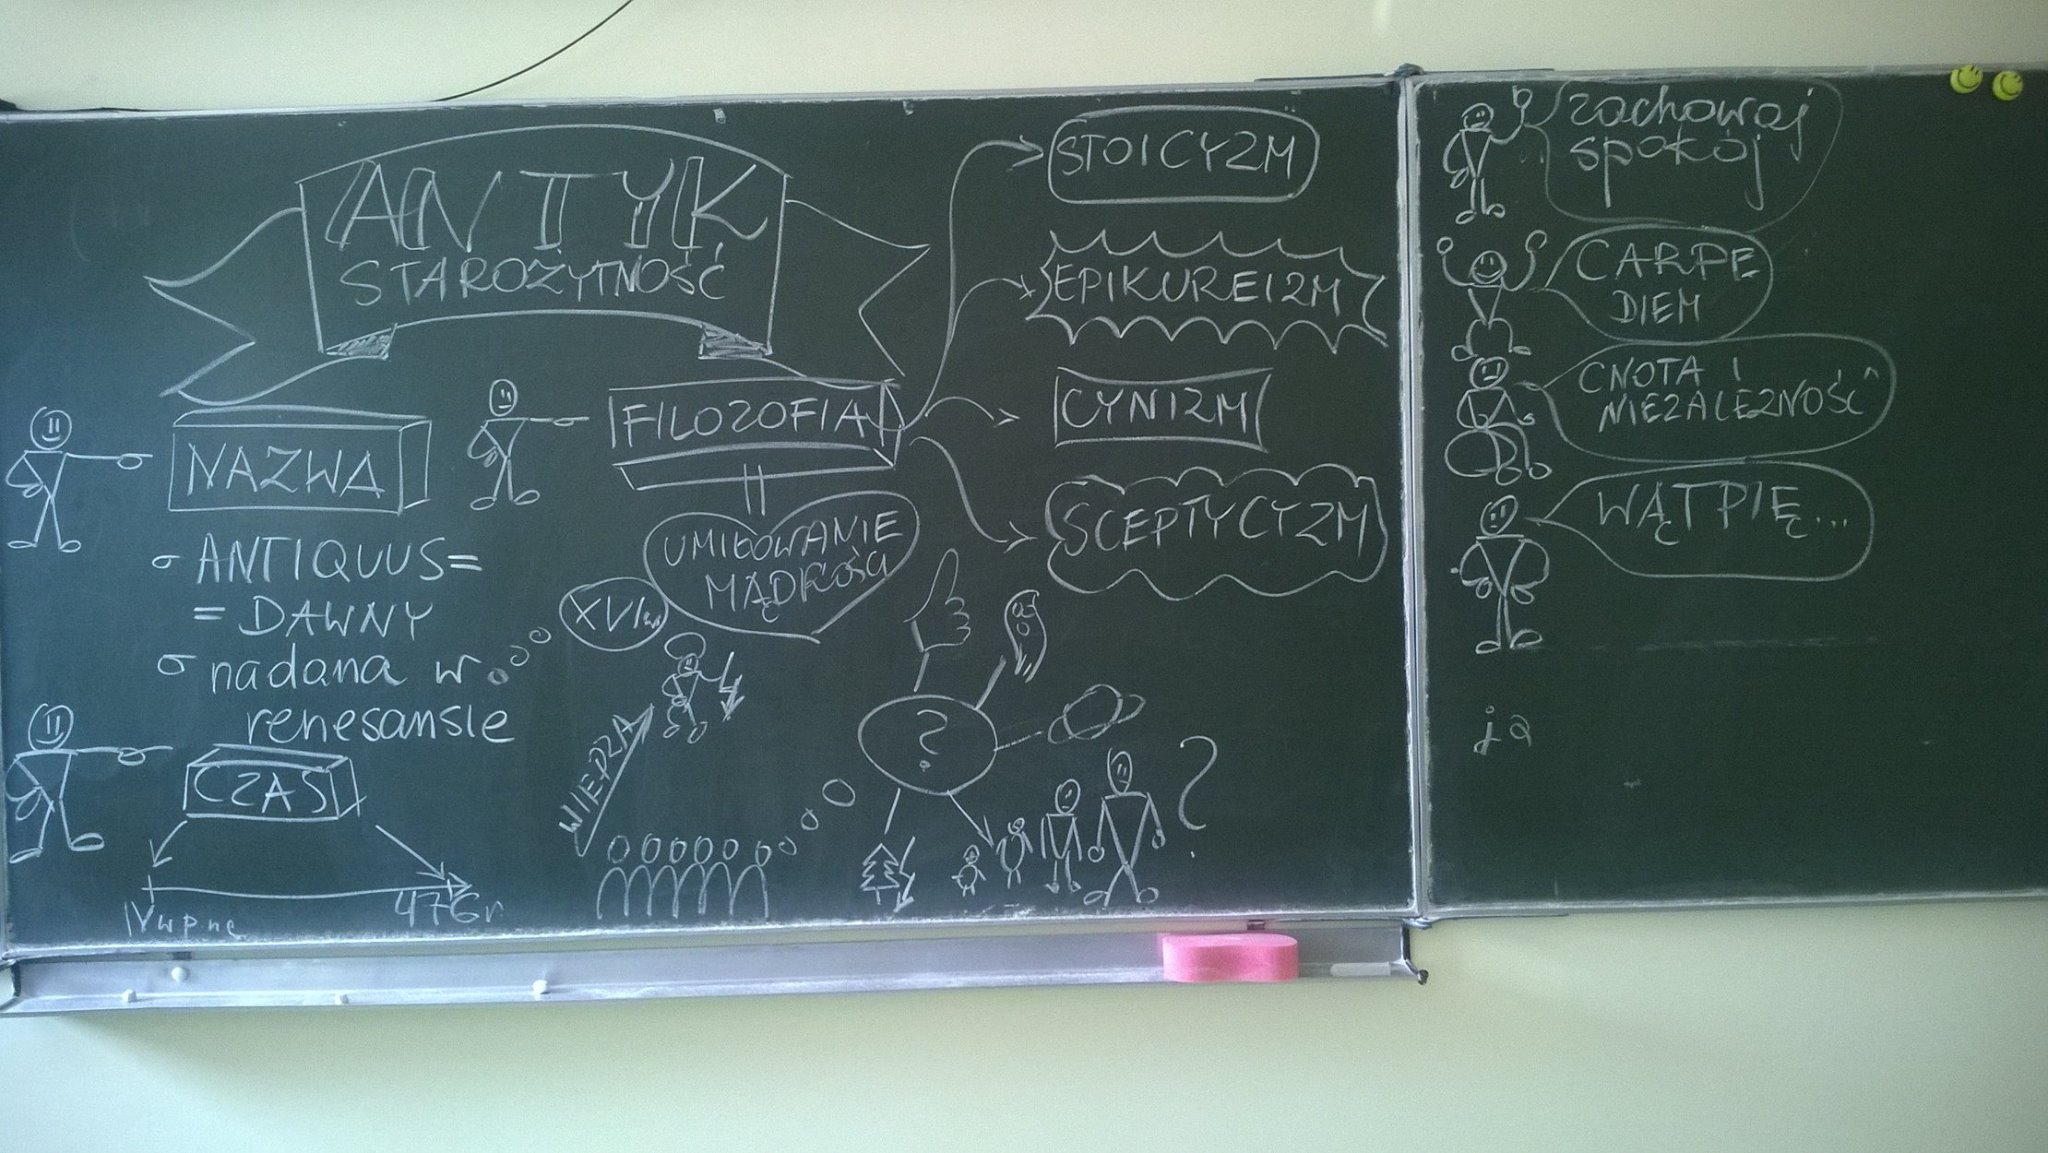 ANTYK
STAROŻYTNOŚĆ
NAZWA
ANTIQUUS =
= DAWNY
nadana w
renesansie
XVI w.
CZAS
IV w p.ne
476 r
FILOZOFIA
=
UMIŁOWANIE
MĄDROŚCI
WIEDZA
?
?
STOICYZM
EPIKUREIZM
CYNIZM
SCEPTYCYZM
zachowaj
spokój
CARPE
DIEM
CNOTA I
NIEZALEŻNOŚĆ
WĄTPIĘ...
ja